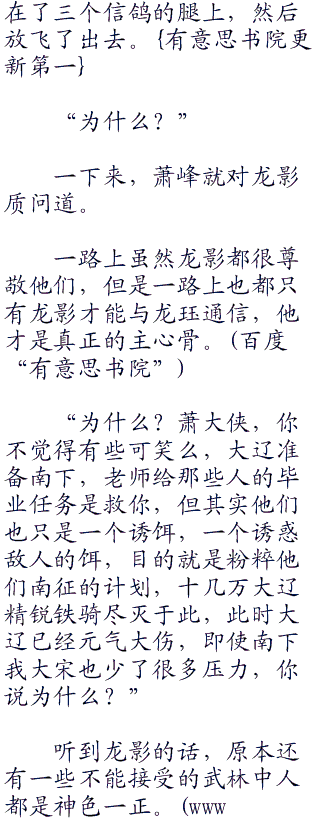 在了三个信鸽的腿上，然后
放飞了出去。{有意思书院更
新第一}
“为什么？”
一下来，萧峰就对龙影
质问道。
一路上虽然龙影都很尊
敬他们，但是一路上也都只
有龙影才能与龙珏通信，他
才是真正的主心骨。(百度
“有意思书院”)
“为什么？萧大侠，你
不觉得有些可笑么，大辽准
备南下，老师给那些人的毕
业任务是救你，但其实他们
也只是一个诱饵，一个诱惑
敌人的饵，目的就是粉粹他
们南征的计划，十几万大辽
精锐铁骑尽灭于此，此时大
辽已经元气大伤，即使南下
我大宋也少了很多压力，你
说为什么？”
听到龙影的话，原本还
有一些不能接受的武林中人
都是神色一正。(www